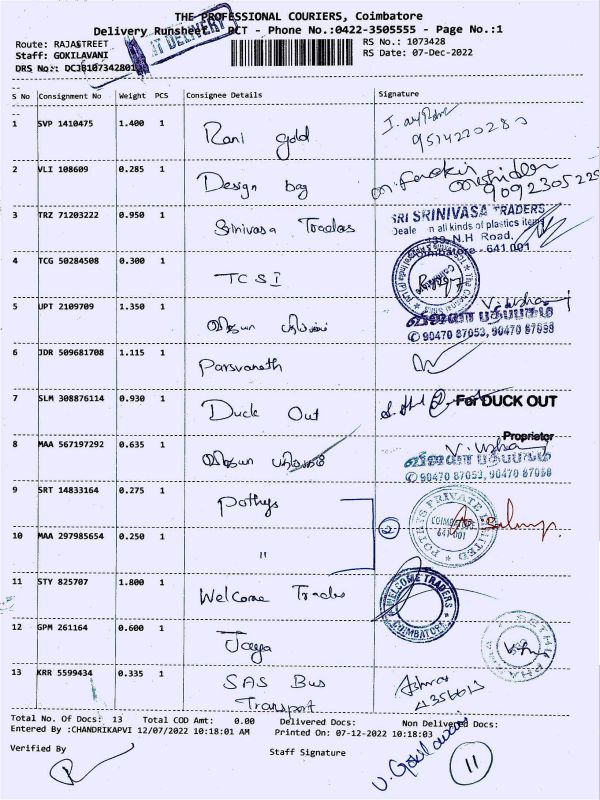 THE PROFESSIONAL COURIERS, Coimbatore
Delivery Runsheet PCT - Phone No.:0422-3505555 - Page No.:1
Route: RAJASTREET RS No.: 1073428
Staff: GOKILAVANI RS Date: 07-Dec-2022
DRS No.: DCJB107342801
DELIVERY
S No Consignment No Weight PCS Consignee Details Signature
1 SVP 1410475 1.400 1 Rani gold
9514220280
2 VLI 108609 0.285 1 Design bag
9092305225
3 TRZ 71203222 0.950 1 Srinivasa Traders SRI SRINIVASA TRADERS
Deale in all kinds of plastics items
N.H Road,
Coimbatore - 641 001
4 TCG 50284508 0.300 1 TCSI
5 UPT 2109709 1.350 1 V. Usharani
விஜயா பதிப்பகம்
✆ 90470 87053, 90470 87058
6 JDR 509681708 1.115 1 Parsvanath
7 SLM 308876114 0.930 1 Duck Out For DUCK OUT
Proprietor
8 MAA 567197292 0.635 1 V. Usharani
விஜயா பதிப்பகம்
✆ 90470 87053, 90470 87058
9 SRT 14833164 0.275 1 Pothys
POTHYS PRIVATE LIMITED
COIMBATORE
641 001
10 MAA 297985654 0.250 1 " 2
11 STY 825707 1.800 1 Welcome Trades
WELCOME TRADERS
COIMBATORE
12 GPM 261164 0.600 1 Jaya
13 KRR 5599434 0.335 1 SAS Bus
Transport
Total No. Of Docs: 13 Total COD Amt: 0.00 Delivered Docs: Non Delivered Docs:
Entered By :CHANDRIKAPVI 12/07/2022 10:18:01 AM Printed On: 07-12-2022 10:18:03
Verified By Staff Signature
V. Gokilavani
11